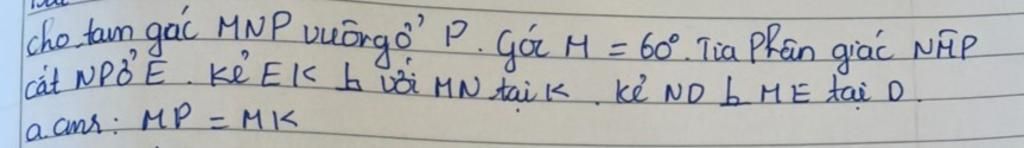 cho tam gác MNP vuông ở P. Góc M = 60°. Tia phân giác NMP
cắt NP ở E. Kẻ EK ⊥ với MN tại K. Kẻ ND ⊥ ME tại D.
a. cmr: MP = MK